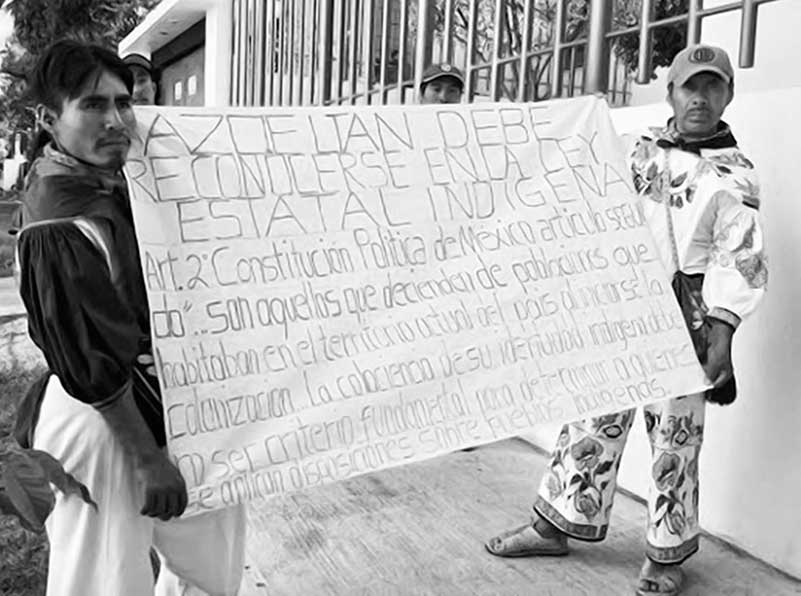 AZQELTAN DEBE
RECONOCERSE EN LA LEY
ESTATAL INDIGENA
Art. 2° Constitución Politica de México articulo segun
do "...son aquellos que decienden de poblaciones que
habitaban en el territorio actual del pais al iniciarse la
colonización... la conciencia de su identidad indigena debe
ra ser criterio fundamental para determinar a quiene
se aplican disposiciones sobre pueblos indigenas.